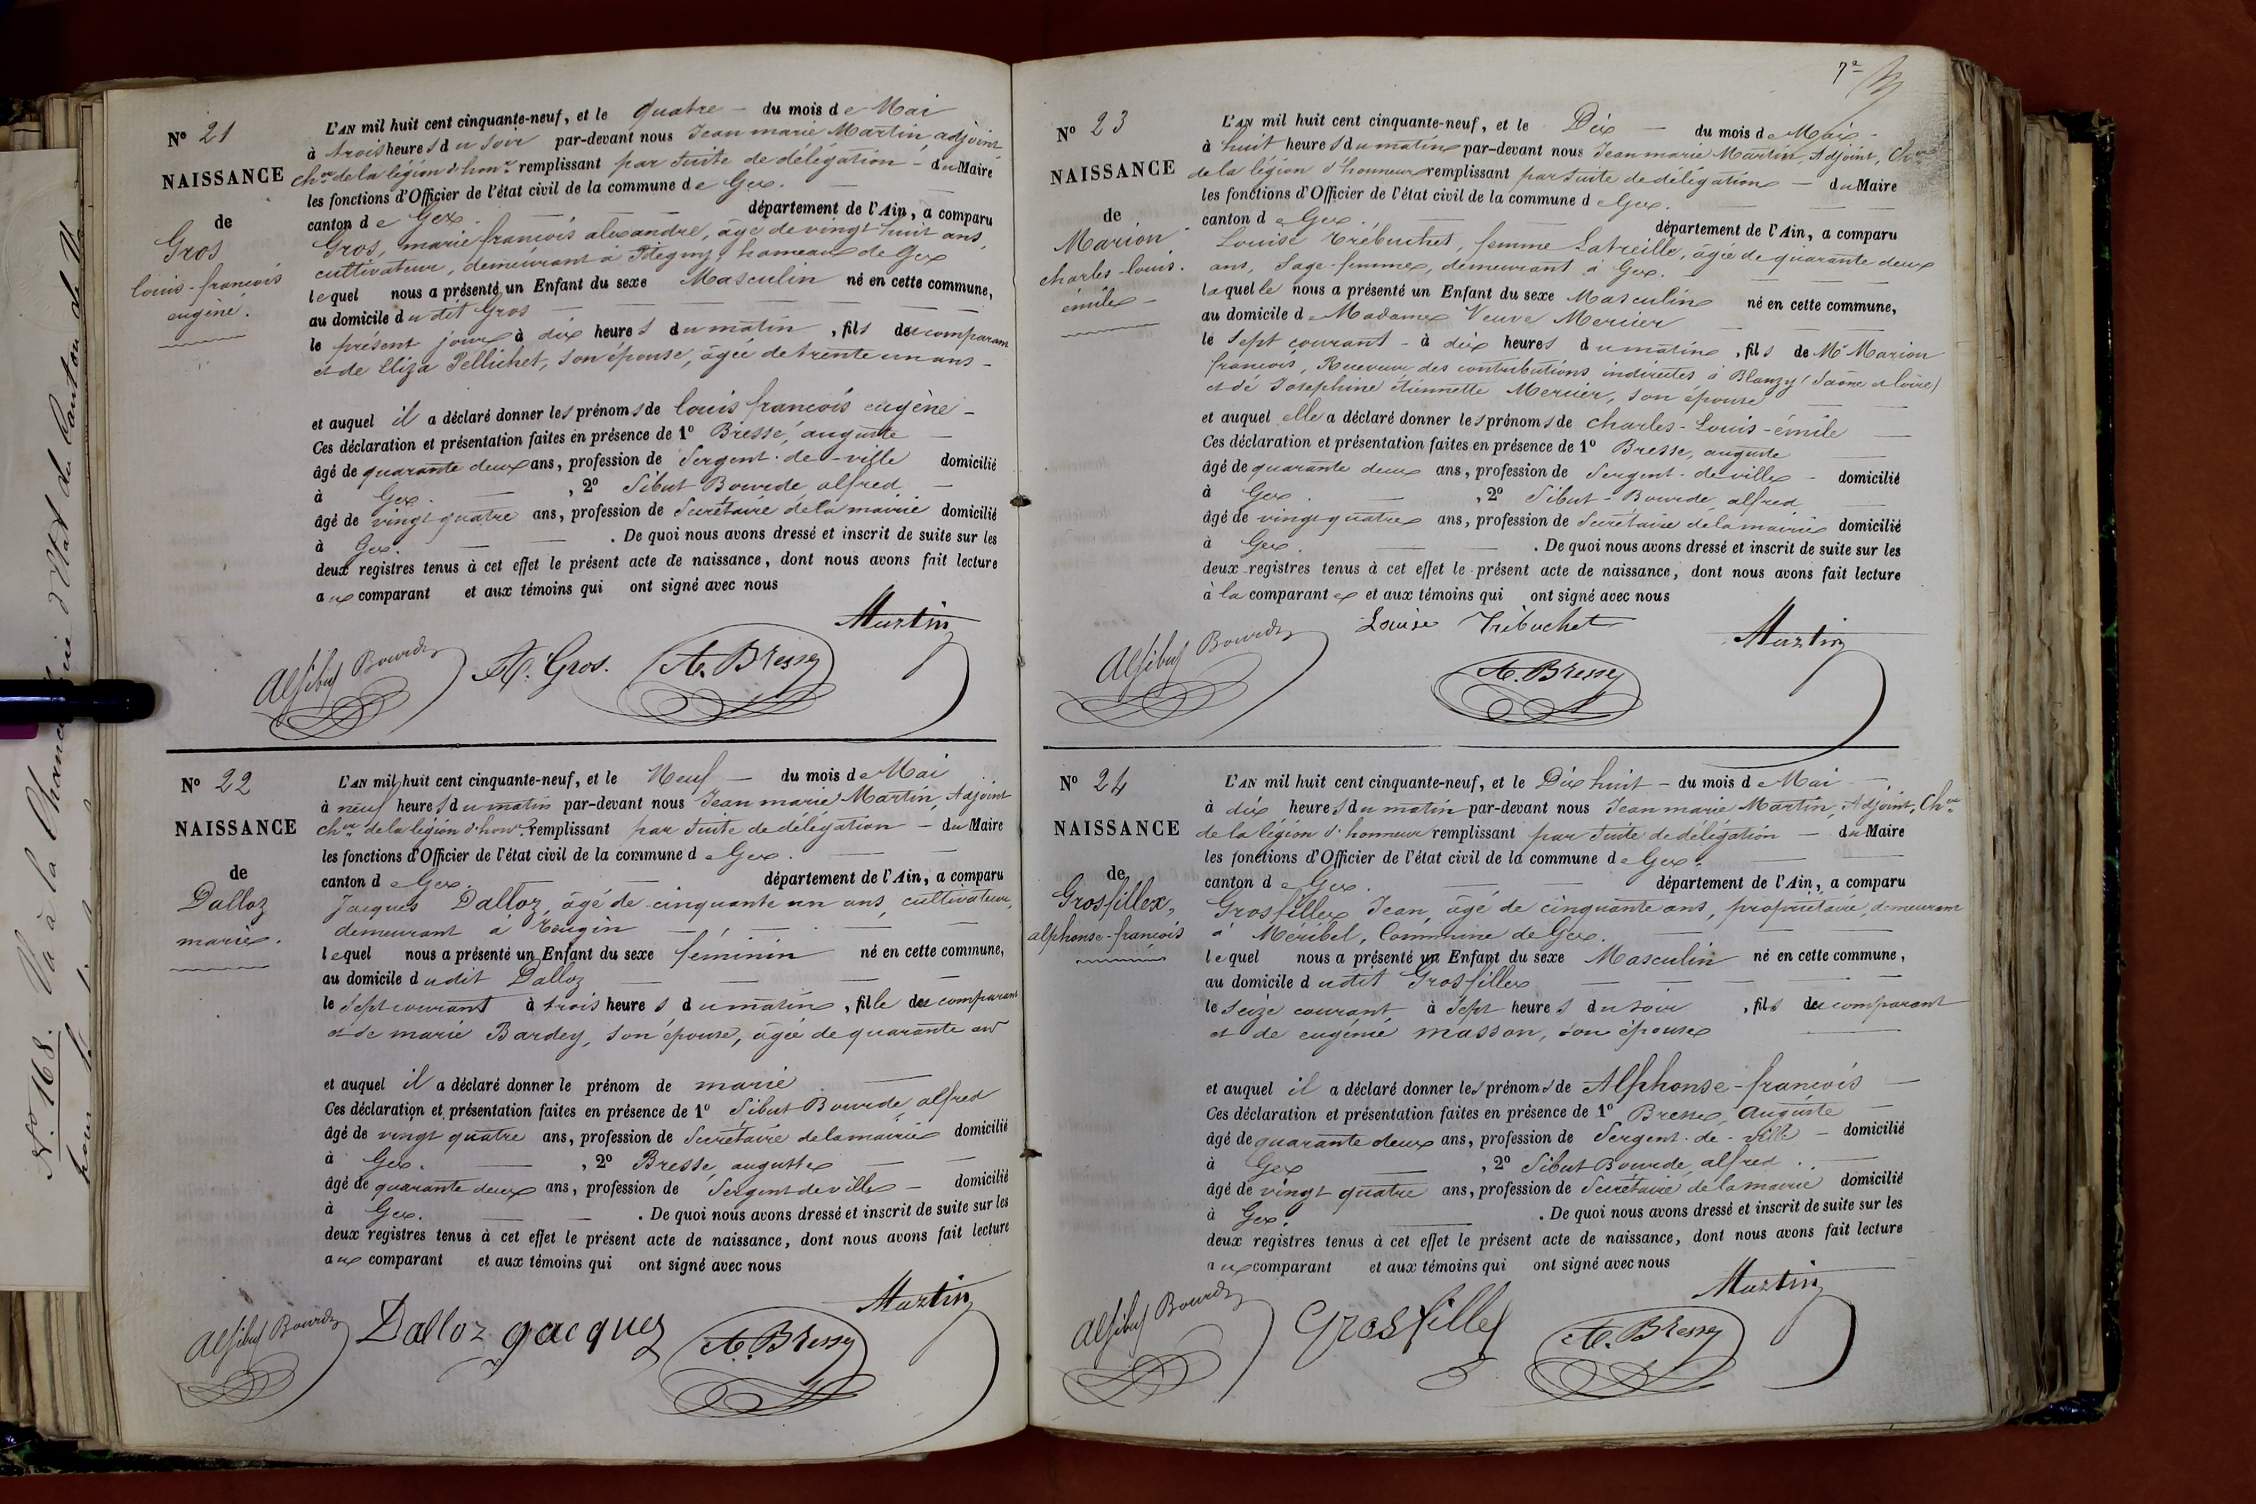 N° 21
NAISSANCE
de
Gros
louis-françois
eugène.
L'AN mil huit cent cinquante-neuf, et le quatre — du mois de Mai
à trois heures du soir par-devant nous Jean marie Martin adjoint
chev de la légion d'honr remplissant par suite de délégation — du Maire
les fonctions d'Officier de l'état civil de la commune de Gex.
canton de Gex. département de l'Ain, a comparu
Gros, marie françois alexandre, âgé de vingt huit ans,
cultivateur, demeurant à Pitegny hameau de Gex
lequel nous a présenté un Enfant du sexe Masculin né en cette commune,
au domicile dudit Gros
le présent jour à dix heures du matin, fils du comparant
et de Eliza Pellichet, son épouse, âgée de trente un ans —
et auquel il a déclaré donner les prénoms de louis françois eugène —
Ces déclaration et présentation faites en présence de 1° Bresse, auguste
âgé de quarante deux ans, profession de Sergent-de-ville domicilié
à Gex. , 2° Sibut Bourde alfred
âgé de vingt quatre ans, profession de Secrétaire de la mairie domicilié
à Gex. . De quoi nous avons dressé et inscrit de suite sur les
deux registres tenus à cet effet le présent acte de naissance, dont nous avons fait lecture
aux comparant et aux témoins qui ont signé avec nous
Martin
Alf Sibut Bourde A. Gros. A. Bresse
N° 22
NAISSANCE
de
Dalloz
marie.
L'AN mil huit cent cinquante-neuf, et le Neuf — du mois de Mai
à neuf heures du matin par-devant nous Jean marie Martin, Adjoint
chev de la légion d'honr remplissant par suite de délégation — du Maire
les fonctions d'Officier de l'état civil de la commune de Gex.
canton de Gex. département de l'Ain, a comparu
Jacques Dalloz, âgé de cinquante un ans, cultivateur,
demeurant à Tougin
lequel nous a présenté un Enfant du sexe féminin né en cette commune,
au domicile dudit Dalloz
le sept courant à trois heures du matin, fille du comparant
et de marie Bardey, son épouse, âgée de quarante ans
et auquel il a déclaré donner le prénom de marie
Ces déclaration et présentation faites en présence de 1° Sibut Bourde alfred
âgé de vingt quatre ans, profession de Secrétaire de la mairie domicilié
à Gex. , 2° Bresse, auguste
âgé de quarante deux ans, profession de Sergent de ville — domicilié
à Gex. . De quoi nous avons dressé et inscrit de suite sur les
deux registres tenus à cet effet le présent acte de naissance, dont nous avons fait lecture
aux comparant et aux témoins qui ont signé avec nous
Martin
Alf Sibut Bourde Dalloz jacques A. Bresse
7e
N° 23
NAISSANCE
de
Marion
charles-louis.
émile —
L'AN mil huit cent cinquante-neuf, et le Dix — du mois de Mai —
à huit heures du matin par-devant nous Jean marie Martin, Adjoint, Chev
de la légion d'honneur remplissant par suite de délégation — du Maire
les fonctions d'Officier de l'état civil de la commune de Gex.
canton de Gex. département de l'Ain, a comparu
Louise Trébuchet, femme Latreille, âgée de quarante deux
ans, Sage-femme, demeurant à Gex.
laquelle nous a présenté un Enfant du sexe Masculin né en cette commune,
au domicile de Madame Veuve Mercier
le Sept courant — à dix heures du matin, fils de Mr Marion
françois, Receveur des contributions indirectes à Blanzy (Saône et Loire)
et de Joséphine étiennette Mercier, son épouse
et auquel elle a déclaré donner les prénoms de charles-Louis-émile
Ces déclaration et présentation faites en présence de 1° Bresse, auguste
âgé de quarante deux ans, profession de Sergent-de ville — domicilié
à Gex. , 2° Sibut-Bourde, alfred
âgé de vingt quatre ans, profession de Secrétaire de la mairie domicilié
à Gex. . De quoi nous avons dressé et inscrit de suite sur les
deux registres tenus à cet effet le présent acte de naissance, dont nous avons fait lecture
à la comparante et aux témoins qui ont signé avec nous
Louise Trébuchet Martin
Alf Sibut Bourde A. Bresse
N° 24
NAISSANCE
de
Grosfillex,
alphonse-françois
L'AN mil huit cent cinquante-neuf, et le Dix huit — du mois de Mai
à dix heures du matin par-devant nous Jean marie Martin, Adjoint, Chev
de la légion d'honneur remplissant par suite de délégation — du Maire
les fonctions d'Officier de l'état civil de la commune de Gex.
canton de Gex. département de l'Ain, a comparu
Grosfillex Jean, âgé de cinquante ans, propriétaire, demeurant
à Méribel, Commune de Gex.
lequel nous a présenté un Enfant du sexe Masculin né en cette commune,
au domicile dudit Grosfillex
le Seize courant à Sept heures du soir, fils du comparant
et de eugénie masson, son épouse
et auquel il a déclaré donner les prénoms de Alphonse-françois
Ces déclaration et présentation faites en présence de 1° Bresse, Auguste
âgé de quarante deux ans, profession de Sergent-de-ville — domicilié
à Gex , 2° Sibut Bourde, alfred.
âgé de vingt quatre ans, profession de Secrétaire de la mairie domicilié
à Gex. . De quoi nous avons dressé et inscrit de suite sur les
deux registres tenus à cet effet le présent acte de naissance, dont nous avons fait lecture
aux comparant et aux témoins qui ont signé avec nous
Martin
Alf Sibut Bourde Grosfillex A. Bresse
N° 168. Vu à la